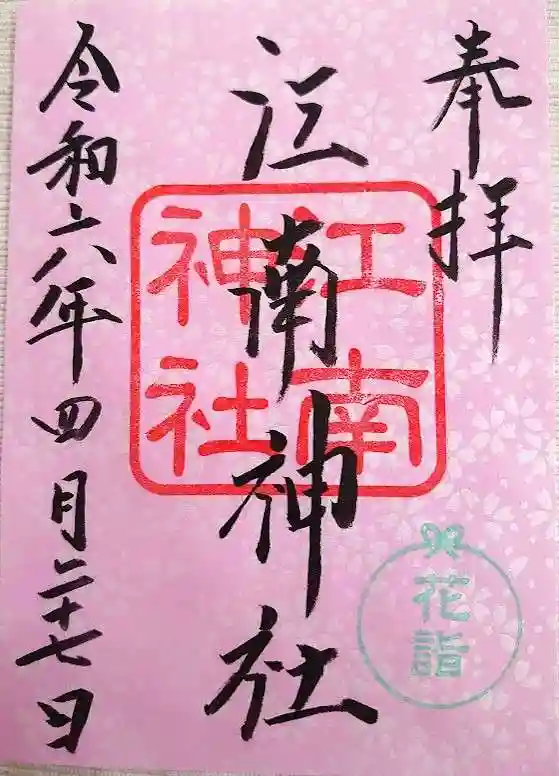 奉拝
江南神社
江南
神社
令和六年四月二十七日
花
詣